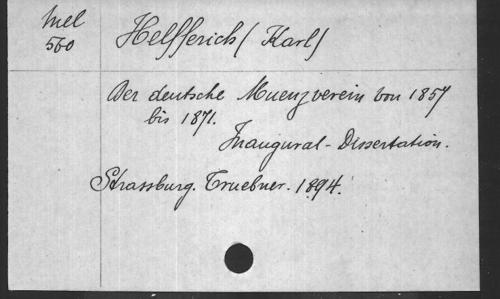 Mel
560
Helfferich (Karl)
Der deutsche Muenzverein von 1857
bis 1871.
Inaugural-Dissertation.
Strassburg. Truebner. 1894.